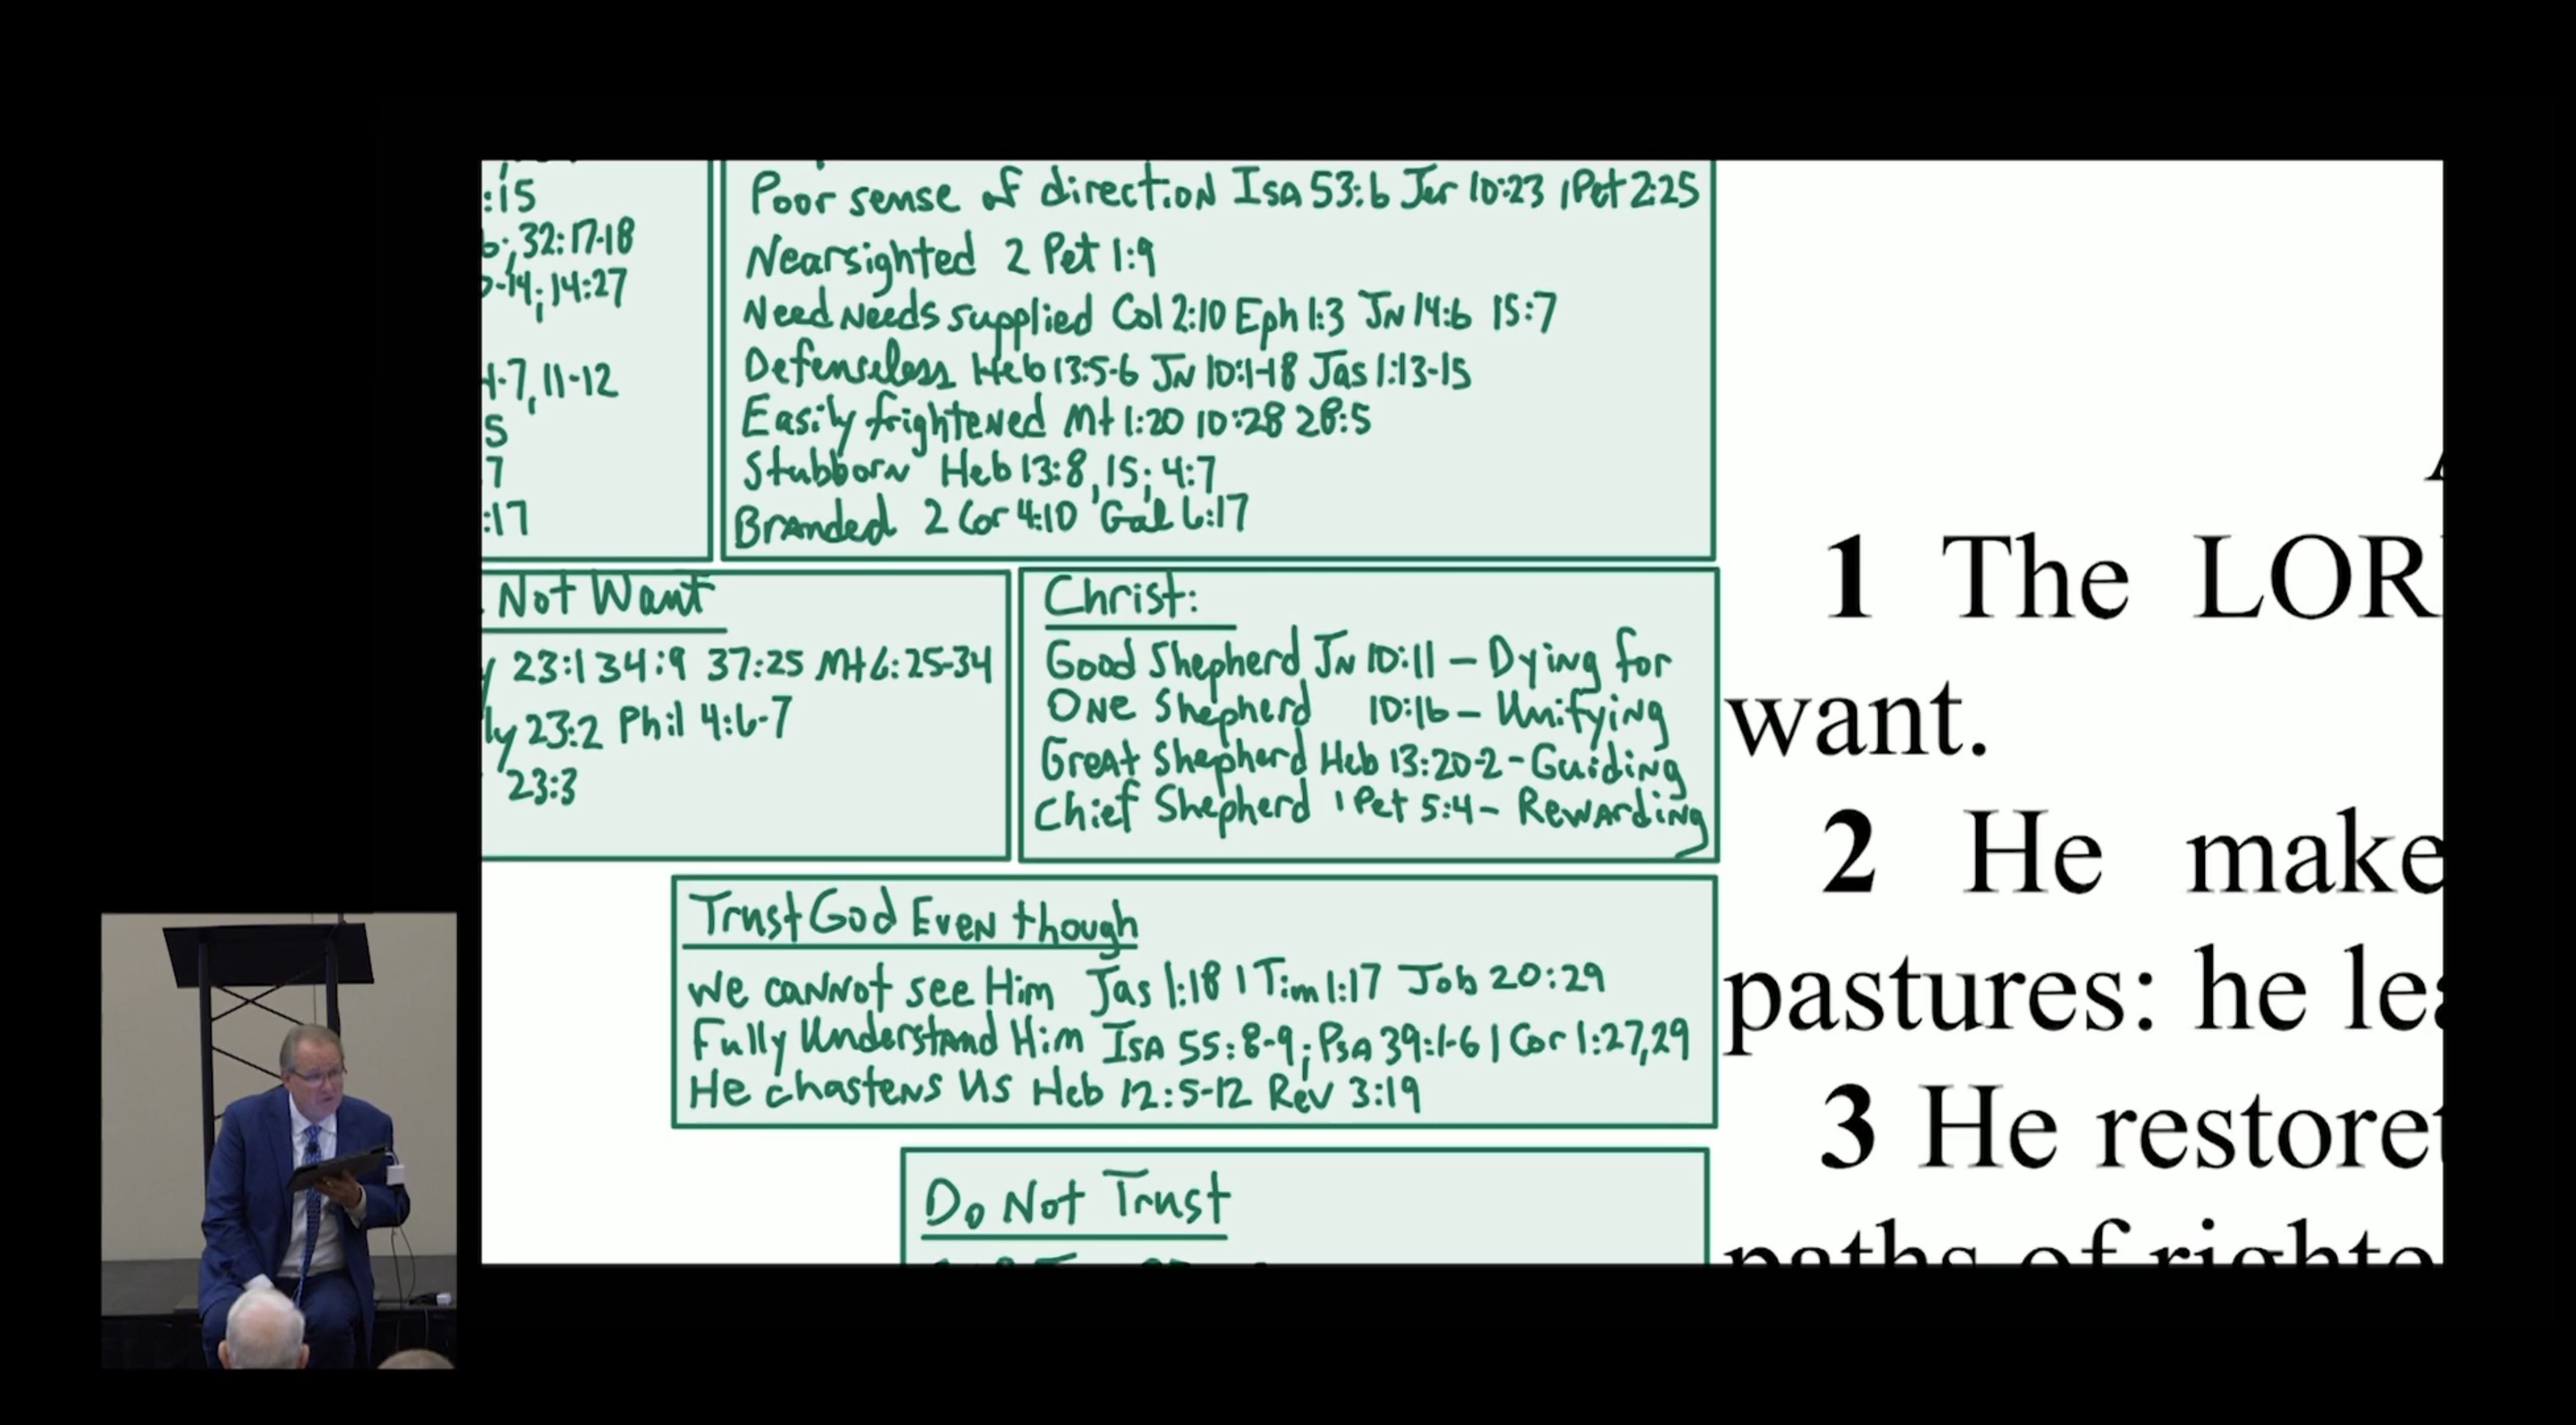 :15
32:17-18
-14; 14:27
-7, 11-12
5
7
:17
Poor sense of direction Isa 53:6 Jer 10:23 1Pet 2:25
Nearsighted 2 Pet 1:9
Need Needs supplied Col 2:10 Eph 1:3 JN 14:6 15:7
Defenseless Heb 13:5-6 JN 10:1-18 Jas 1:13-15
Easily frightened Mt 1:20 10:28 28:5
Stubborn Heb 13:8, 15; 4:7
Branded 2 Cor 4:10 Gal 6:17
Not Want
23:1 34:9 37:25 Mt 6:25-34
ly 23:2 Phil 4:6-7
23:3
Christ:
Good Shepherd JN 10:11 - Dying for
One Shepherd 10:16 - Unifying
Great Shepherd Heb 13:20-2 - Guiding
Chief Shepherd 1 Pet 5:4 - Rewarding
Trust God Even though
we cannot see Him Jas 1:18 1 Tim 1:17 Job 20:29
Fully Understand Him Isa 55:8-9; Psa 39:1-6 1 Cor 1:27,29
He chastens us Heb 12:5-12 Rev 3:19
Do Not Trust
1 The LOR
want.
2 He make
pastures: he lea
3 He restoret
paths of righteo